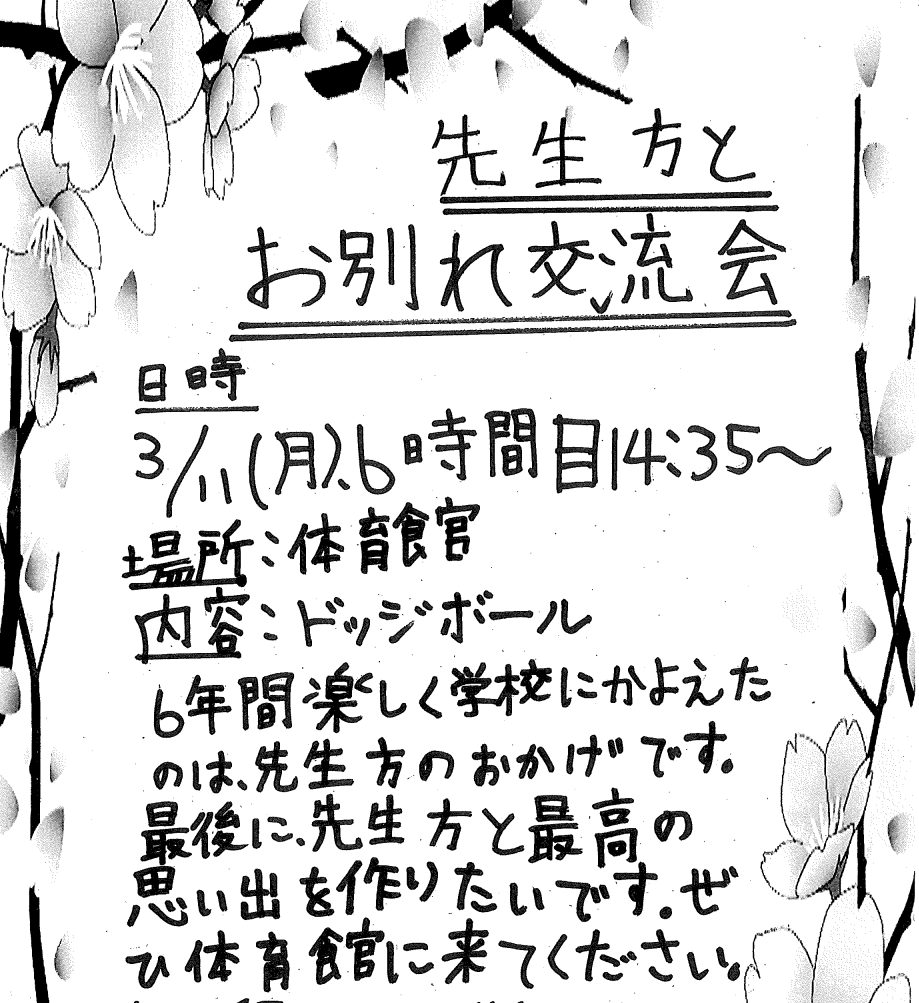 先生方と
お別れ交流会
日時
3/11(月)、6時間目14:35～
場所：体育館
内容：ドッジボール
6年間楽しく学校にかよえた
のは、先生方のおかげです。
最後に、先生方と最高の
思い出を作りたいです。ぜ
ひ体育館に来てください。